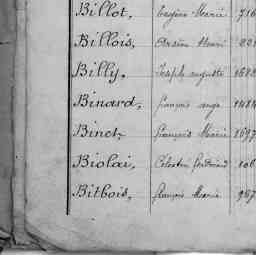 Billot, Eugène Marie 716
Billois, Arsène Henri
Billy, Joseph auguste
Binard, françois ange
Binet, françois Marie 1697
Biolai, Celestin ferdinand 106
Bitbois, françois Marie 967